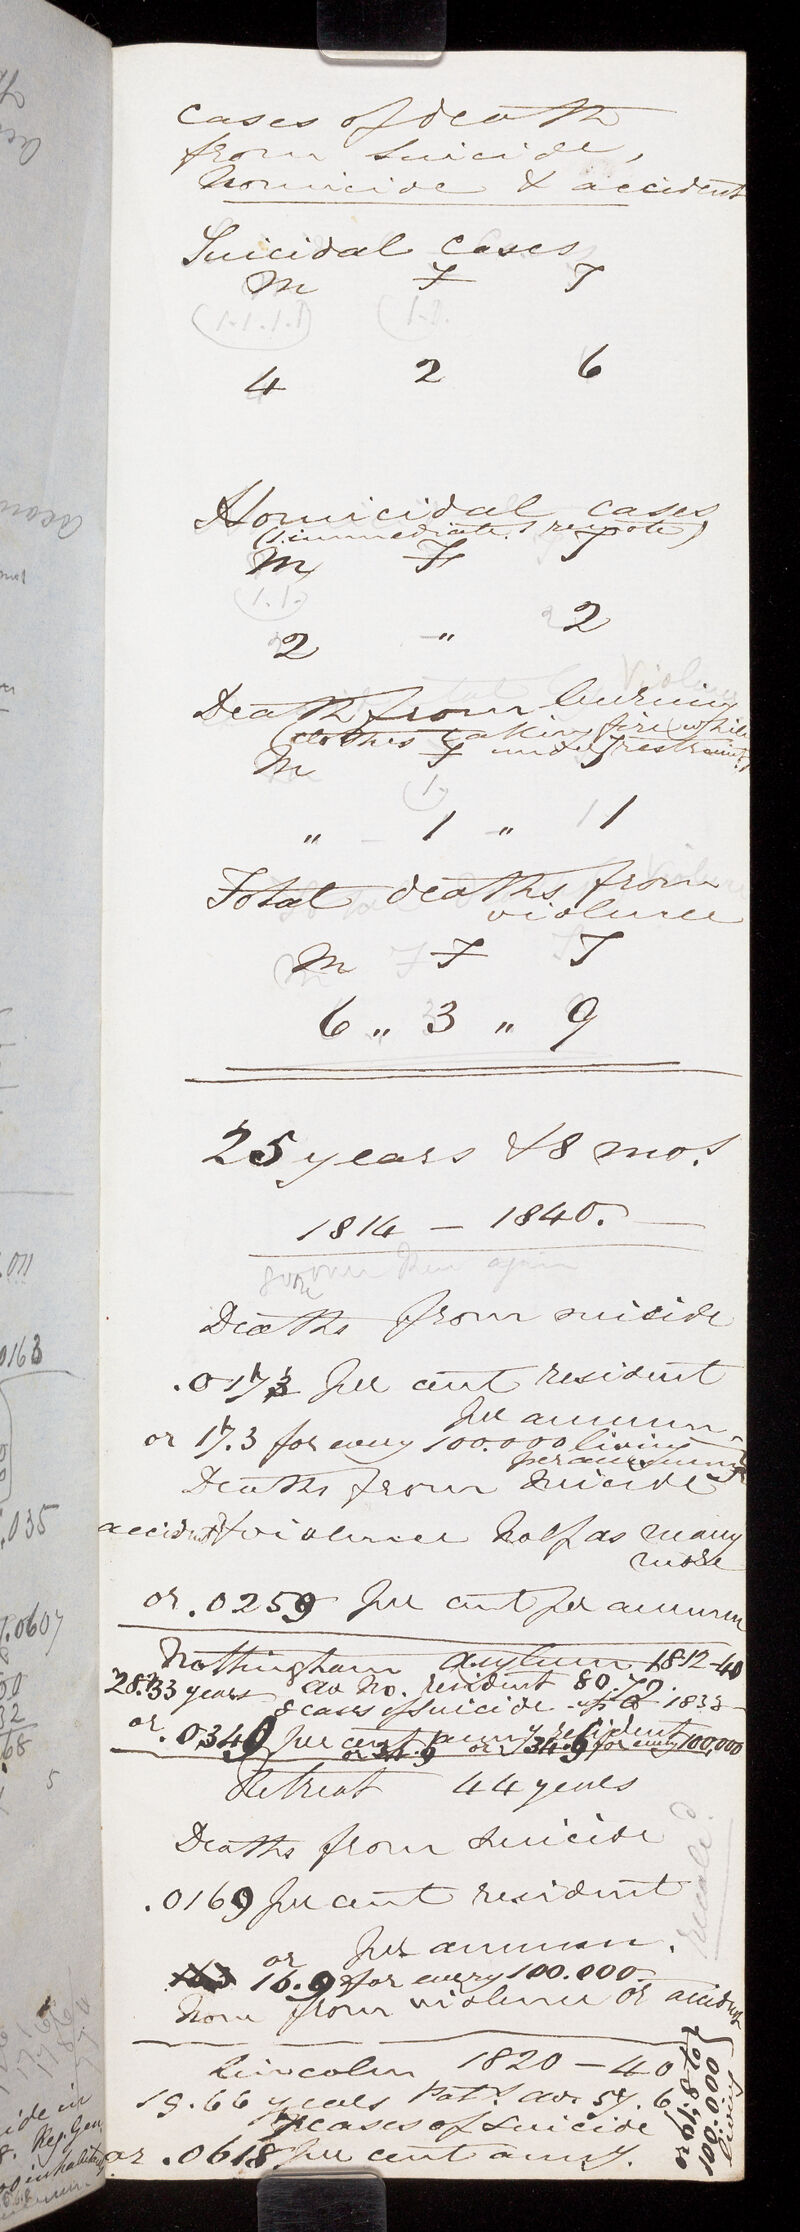 cases of death
from suicide,
homicide & accident
Suicidal cases
M F T
(1.1.1.1) (1.1.
4 2 6
Homicidal cases
(1. immediate. 1 remote)
M F T
(1.1.)
2 " 2
Death from burning
(clothes taking fire while
under restraint)
M F T
(1.)
" 1 " 1
Total deaths from
violence
M F T
6 " 3 " 9
25 years & 8 mos.
1814 — 1840.
gone over then again
Deaths from suicide
.0173 per cent resident
per annum
or 17.3 for every 100.000 living
per annum
Deaths from suicide
accident & violence half as many
more
or .0259 per cent per annum
Nottingham Asylum 1812-40
28.33 years av No. resident 80.79.
8 cases of suicide 1833
or .0349 per cent resident
or 34.9 for every 100,000
Retreat 44 years
Deaths from suicide
.0169 per cent resident
per annum.
or 16.9 for every 100.000
None from violence or accident
Lincoln 1820 — 40
19.66 years Pats. av. 57.6
7 cases of suicide
or .0618 per cent
or 61.8 for
100.000
living
.0163
.035
.0607
ide in
Reg. Gen